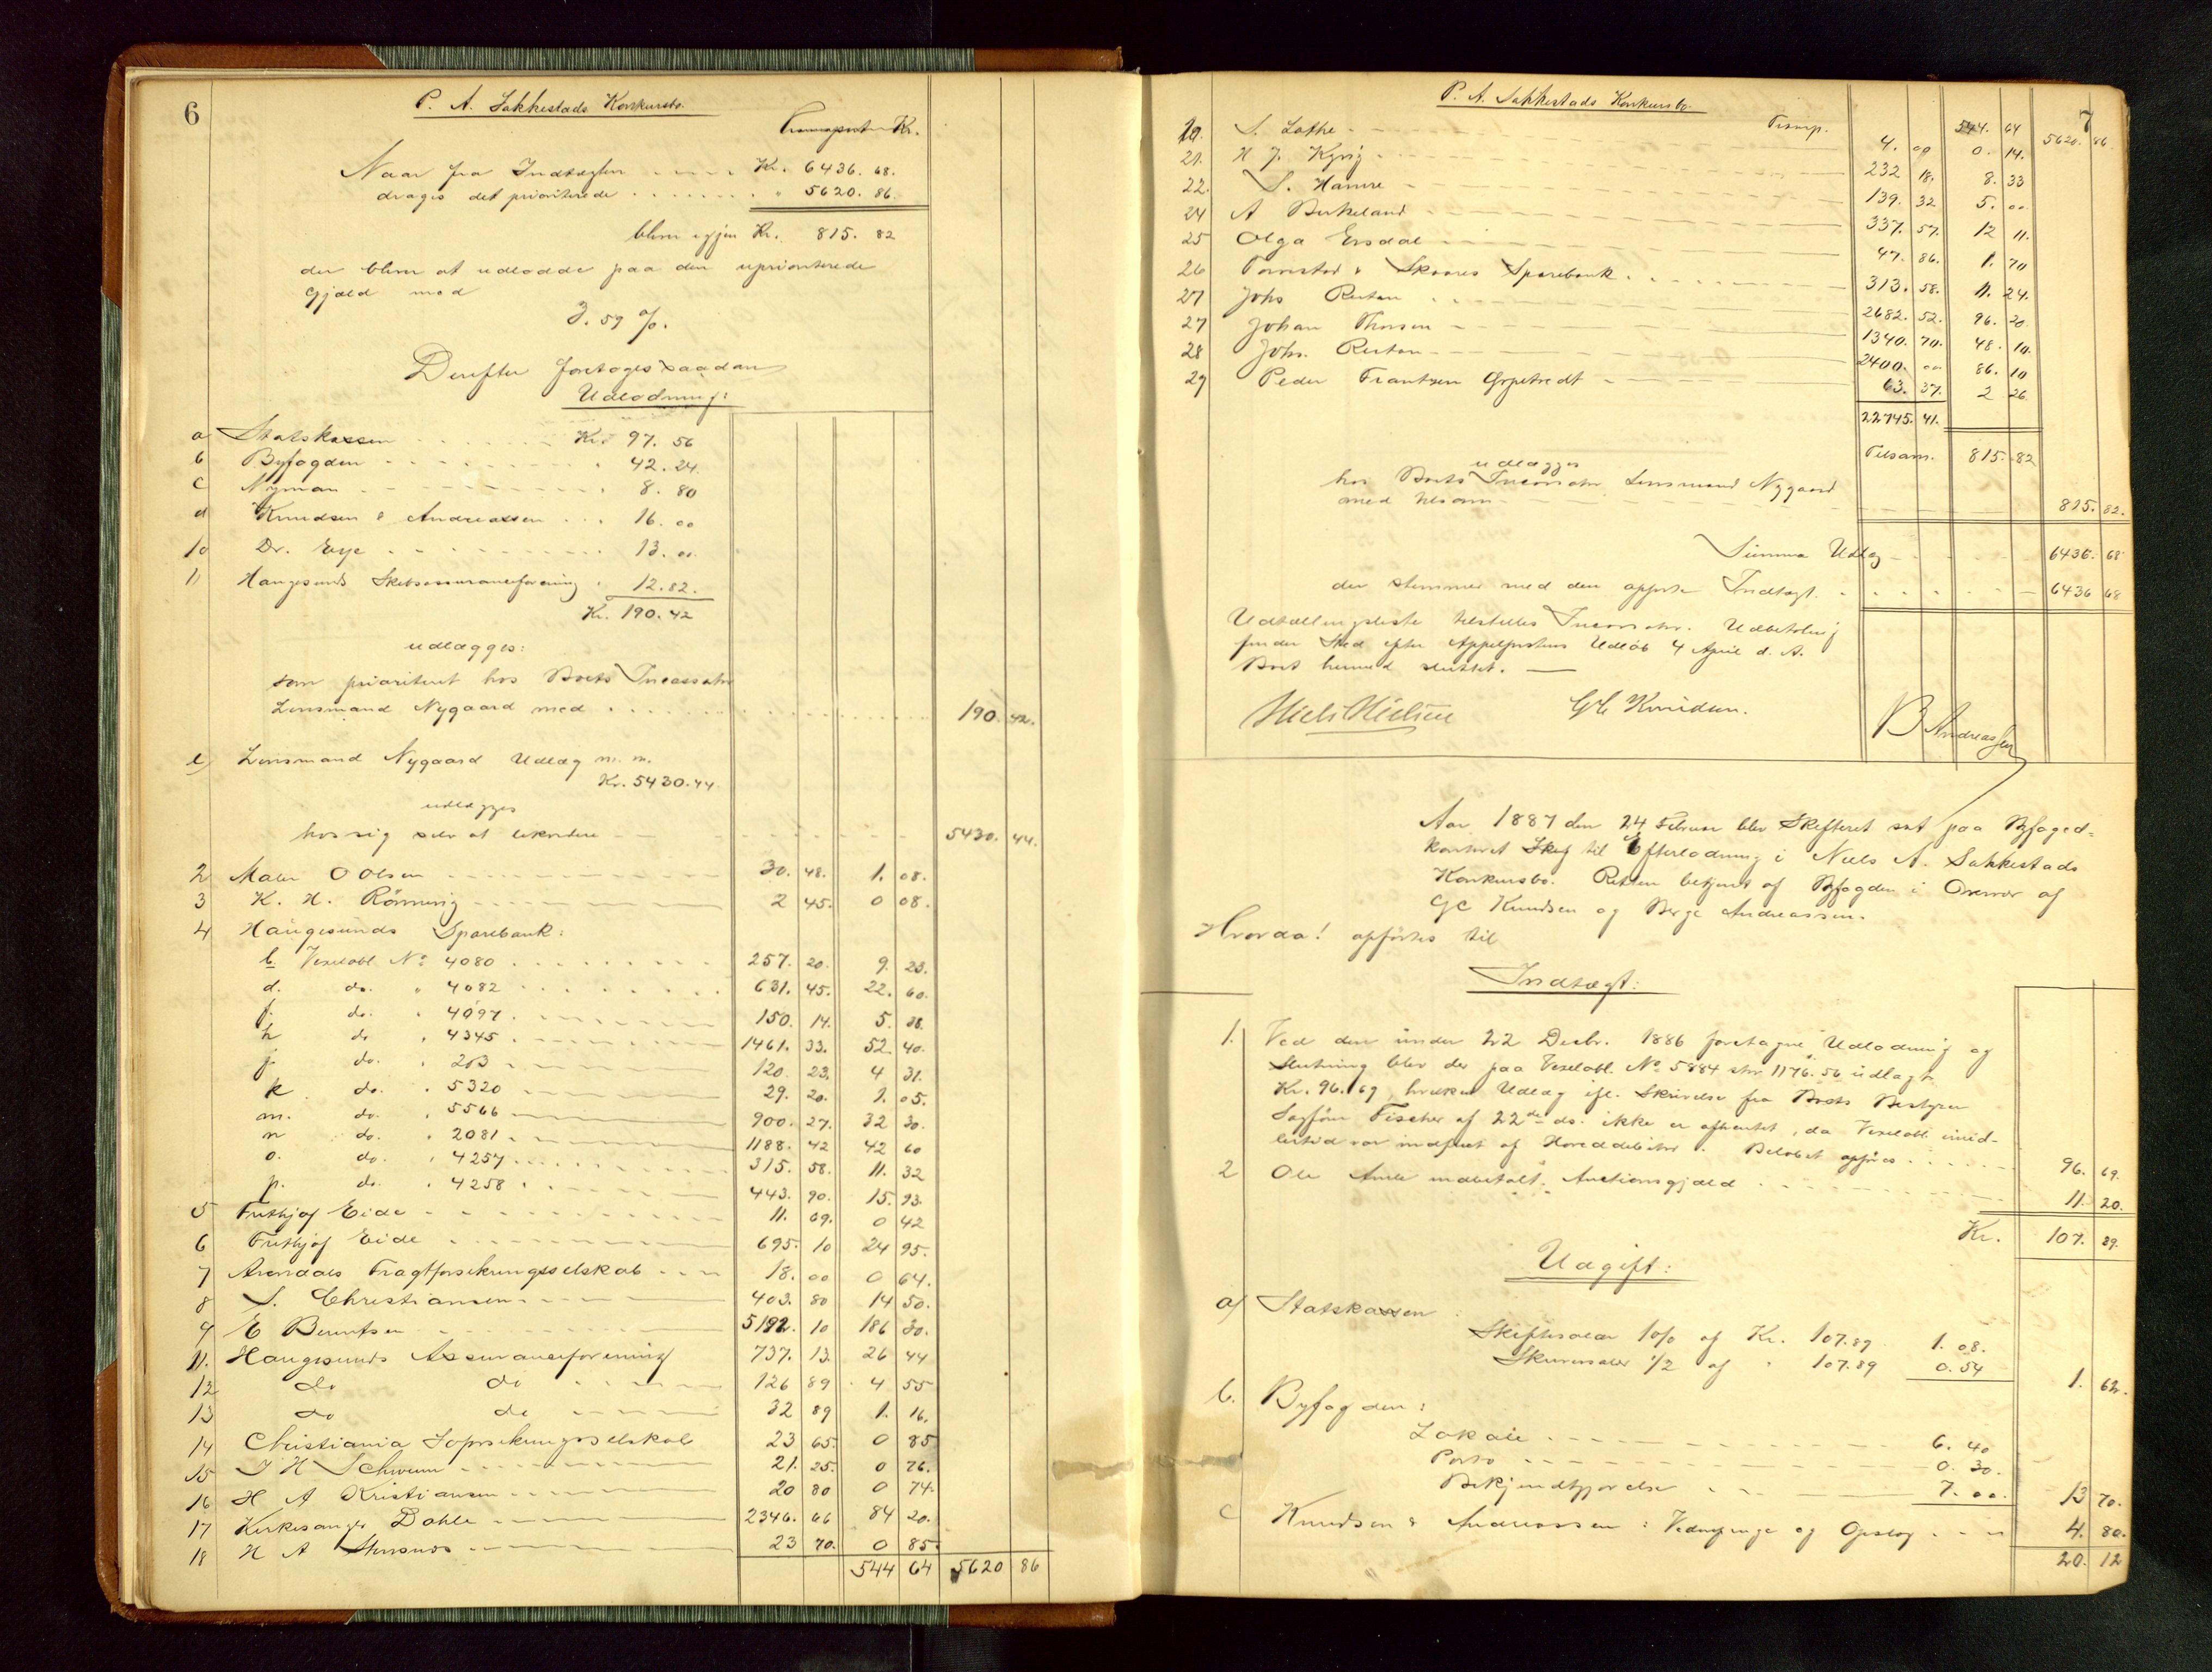 6
P. A. Sakkestads Konkursbo.
Transport Kr.
Naar fra Indtægten . . . . Kr. 6436. 68.
drages det prioriterede . . . . . . . " 5620. 86.
bliver igjen Kr. 815. 82
der bliver at udlodde paa den uprioriterede
Gjæld med
3.59 %.
Derefter foretoges saadan
Udlodning:
a Statskassen . . . . . Kr. 97. 56
b Byfogden . . . . . 42. 24.
c Nyman . . . . . 8. 80
d Knudsen & Andreassen . . . 16. 00
10 Dr. Eye . . . . . 13. 00
11 Haugesunds Skibsassuranceforening . 12. 82.
Kr. 190. 42
udlægges:
som prioriteret hos Boets Incassator
Lensmand Nygaard med . . . . . 190. 42.
e) Lensmand Nygaard Udlæg m. m.
Kr. 5430. 44
udlægges
hos sig selv at likvidere 5430. 44.
2 Maler O Olsen 30. 48. 1. 08.
3 K. H. Rönnevig 2 45. 0 08.
4 Haugesunds Sparebank:
b. Vexelobl. No 4080 . . . 257. 20. 9. 23.
d. do. " 4082 . . . 631. 45. 22. 60.
f. do. . 4097. 150. 14. 5. 38.
h do . 4345 1461. 33. 52. 40.
j. do. . 263 120. 23. 4 31.
k do. . 5320 29. 20. 1. 05.
m. do. . 5566 900. 27. 32 30.
n do. . 2081 1188. 42 42 60
o. do. . 4257 315. 58. 11. 32
p. do. . 4258 443. 90. 15. 93.
5 Frithjof Eide 11. 69. 0 42
6 Frithjof Eide 695. 10 24 95.
7 Arendals Fragtforsikringsselskab 18. 00 0 64.
8 S. Christiansen 403. 80 14 50.
9 E Berentsen 5192. 10 186 30.
11. Haugesunds Assuranceforening 737. 13. 26 44
12 do do 126 89 4 55
13 do do 32 89 1. 16.
14 Christiania Søforsikringsselskab 23 65. 0 85
15 J H Schwenn 21. 25. 0 76.
16 H A Kristiansen 20 80 0 74.
17 Kirkesanger Dahle 2346. 66 84 20.
18 H A 23 70. 0 85.
544 64 5620 86
P. A. Sakkestads Konkursbo.
7
Transp. 544. 64 5620. 86
20. S. Lothe 4. 00 0. 14.
21. H J. Kyvig 232 18. 8. 33
22. S. Hamre 139. 32 5. 00
24 A Birkeland 337. 57. 12 11.
25 Olga Ersdal 47. 86. 1. 70
26 Torvestad & Skaares Sparebank 313. 58. 11. 24.
27 Johs Reitan 2682. 52. 96. 20.
27 Johan Thorsen 1340. 70. 48. 10.
28 Johs. Reitan 2400. 00 86. 10
29 Peder Frantzen 63. 37. 2 26.
22745. 41.
Tilsam. 815. 82
udlægges
hos Boets Incassator Lensmand Nygaard
med tilsam 815. 82.
Summa Udlæg 6436. 68
der stemmer med den opførte Indtægt. 6436 68
Udtællingsliste tilstilles Incassator. Udbetaling
finder Sted efter Appelfristens Udløb 4 April d. A.
Boet hermed sluttet.
Niels Nielsen GC Knudsen. B Andreassen
Aar 1887 den 24 Februar blev Skifteret sat paa Byfoged=
kontoret til Efterlodning i Niels A. Sakkestads
Konkursbo. Retten betjent af Byfogden i Overvær af
GC Knudsen og Berge Andreassen.
Hvorda! opførtes til
Indtægt:
1. Ved den under 22 Decbr. 1886 foretagne Udlodning og
Slutning blev der paa Vexelobl. No 5884 stor 1176.56 udlagt
Kr. 96. 69, hvilket Udlæg ifl. Skrivelse fra Boets Bestyrer
Sagfører Fischer af 22de ds. ikke er afhentet, da Vexelobl. imid-
lertid var indfriet af Hoveddebitor. Beløbet opføres . . . 96. 69.
2 Ole Amle indbetalt Auctionsgjæld 11. 20.
Kr. 107. 89.
Udgift:
a) Statskassen :
Skiftesalær 1 o/o af Kr. 107.89 1. 08.
Skriversalær 1/2 af " 107.89 0. 54
1. 62.
b. Byfogden:
Lokale 6. 40
Porto 0. 30.
Bekjendtgjørelse 7. 00. 13 70.
c Knudsen & Andreassen : Vidnepenge og Opslag 4. 80.
20. 12